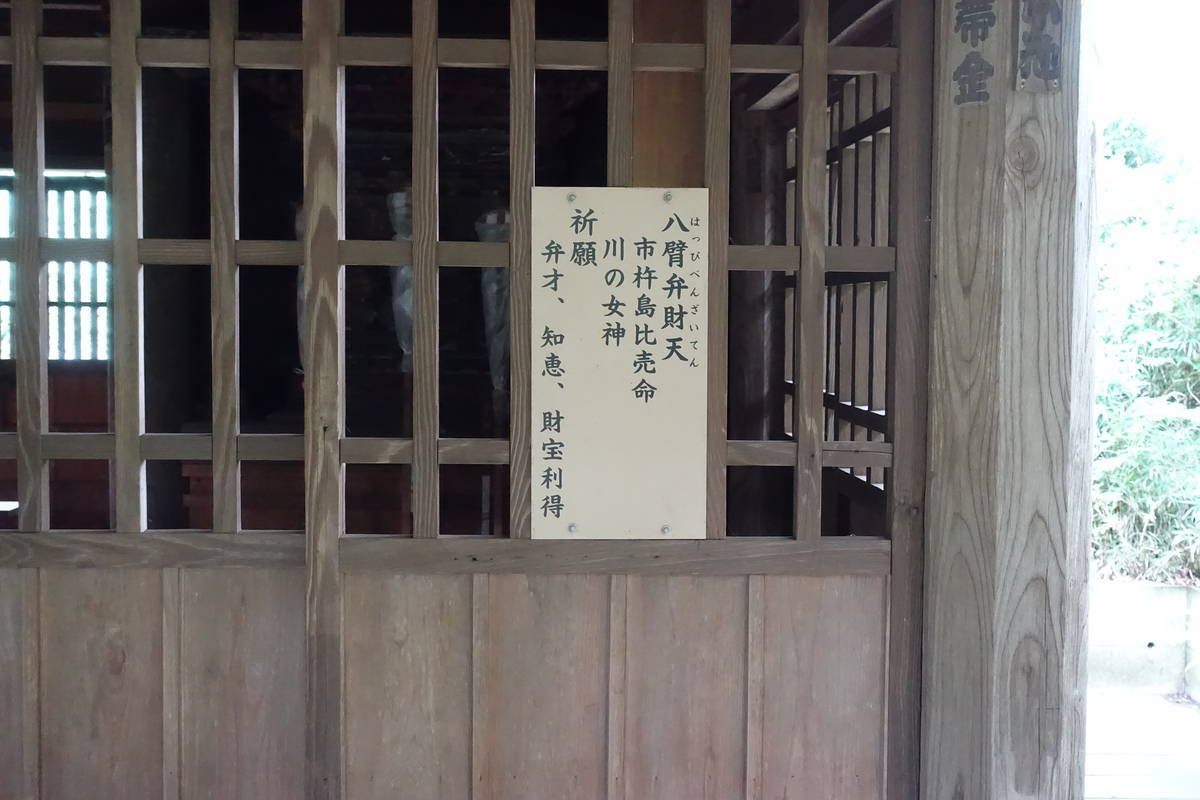 帯金
八臂弁財天
はっぴべんざいてん
市杵島比売命
川の女神
祈願
弁才、知恵、財宝利得